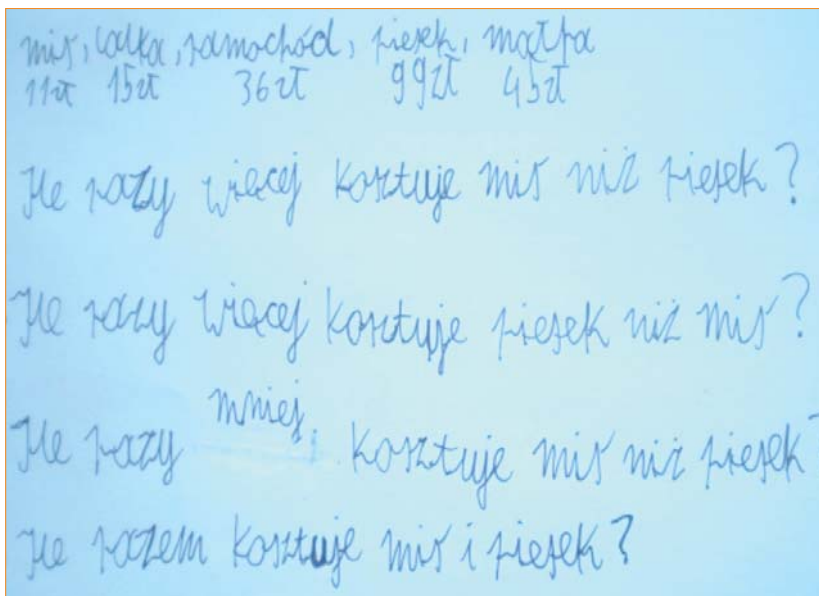 miś, lalka, samochód, piesek, małpa
11zł 15zł 36zł 99zł 45zł
Ile razy więcej kosztuje miś niż piesek?
Ile razy więcej kosztuje piesek niż miś?
mniej
Ile razy kosztuje miś niż piesek
Ile razem kosztuje miś i piesek?